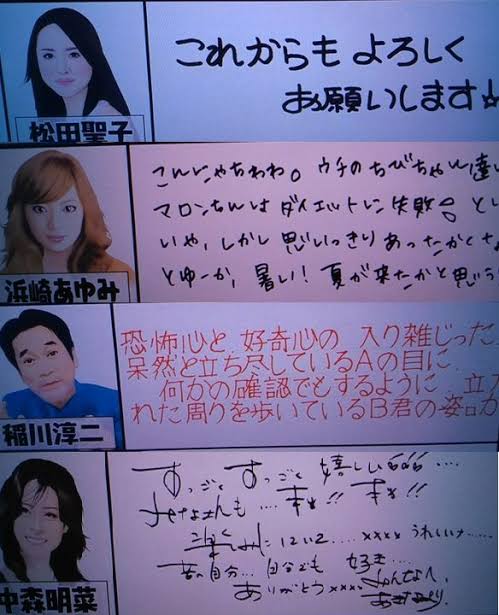 これからも よろしく
お願いします☆
松田聖子
こんにゃちわわ。ウチのちびちゃん達い
マロンちんは ダイエットに 失敗 とい
いや、しかし 思いっきり あったかくな
とゆーか、暑い！夏が来たかと思う
浜崎あゆみ
恐怖心と 好奇心の 入り雑じった
呆然と立ち尽しているAの目に
何かの確認でもするように 立
れた周りを歩いているB君の姿が
稲川淳二
すっごく すっごく 嬉しい ....
も... 本当!! 本当!!
.... xxxx うれしい
昔の自分... 自分でも 好き....
ありがとう xxxx みんなへ
あきなより
中森明菜